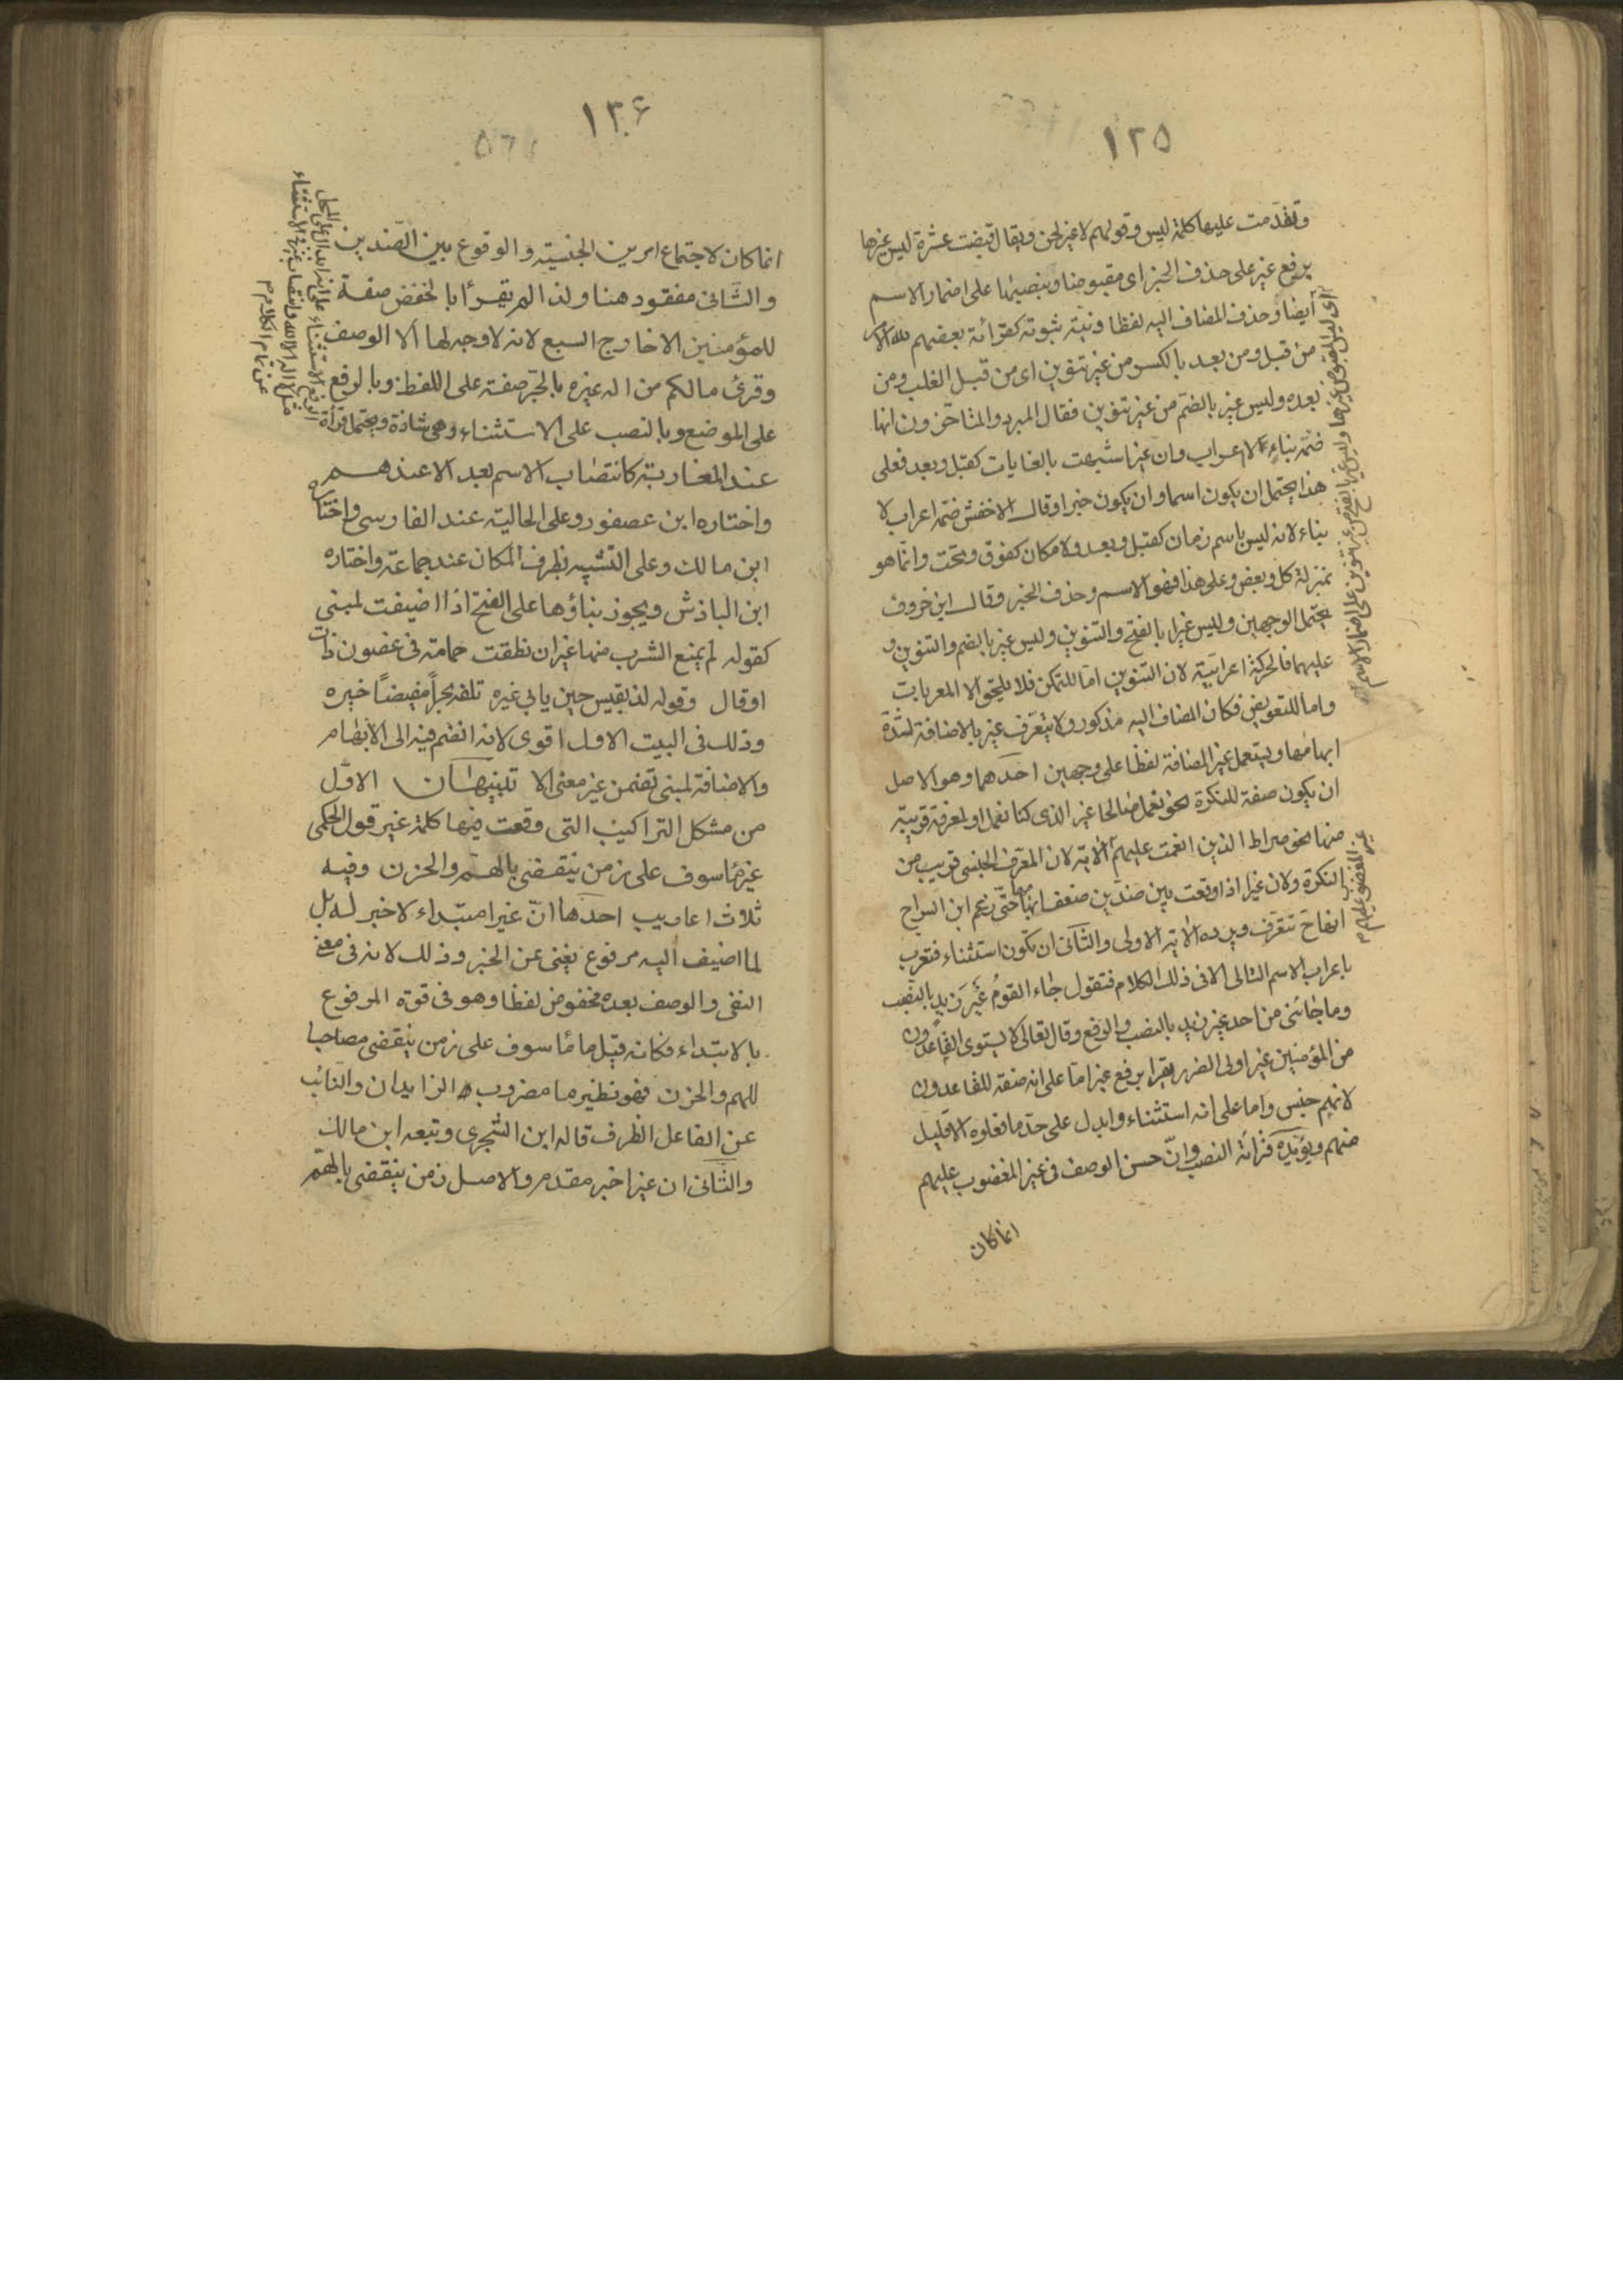 ١٣٥
وتقدمت عليها كلمة ليس وقولهم لا غير لحن ويقال قبضت عشرة ليس غيرها
برفع غير على حذف الخبر اى مقبوضا وبنصبها على اضمار الاسم
ايضا وحذف المضاف اليه لفظا ونية ثبوته كقرائة بعضهم لله الامر
من قبل ومن بعد بالكسر من غير تنوين اى من قبل الغلب ومن
بعده وليس غير بالضم من غير تنوين فقال المبرد والمتاخرون انها
ضمة بناء لا اعراب وان غيرا شبهت بالغايات كقبل وبعد فعلى
هذا يحتمل ان يكون اسما وان يكون خبرا وقال الاخفش ضمة اعراب لا
بناء لانه ليس باسم زمان كقبل وبعد ولا مكان كفوق وتحت وانما هو
بمنزلة كل وبعض وعلى هذا فهو الاسم وحذف الخبر وقال ابن خروف
يحتمل الوجهين وليس غيرا بالفتح والتنوين وليس غير بالضم والتنوين و
عليهما فالحركة اعرابية لان التنوين اما للتمكن فلا يلحق الا المعربات
واما للتعويض فكان المضاف اليه مذكور ولا يتعرف غير بالاضافة لشدة
ابهامها ويستعمل غير المضافة لفظا على وجهين احدهما وهو الاصل
ان يكون صفة للنكرة نحو نعمل صالحا غير الذى كنا نعمل او لمعرفة قريبة
منها نحو صراط الذين انعمت عليهم الاية لان المعرف الجنسى قريب من
النكرة ولان غيرا اذا وقعت بين ضدين ضعف ابهامها حتى زعم ابن السراج
انها ح تتعرف ويرده الاية الاولى والثانى ان تكون استثناء فتعرب
باعراب الاسم التالى الا فى ذلك الكلام فتقول جاء القوم غير زيد بالنصب
وما جائنى من احد غير زيد بالنصب والرفع وقال تعالى لا يستوى القاعدون
من المؤمنين غير اولى الضرر يقرا برفع غير اما على انه صفة للقاعدون
لانهم جنس واما على انه استثناء وابدل على حد ما فعلوه الا قليل
منهم ويؤيده قرائة النصب وان حسن الوصف فى غير المغضوب عليهم
انما كان
اى ليس المقبوض غيرها وليس غير بالفتح من غير تنوين على اضمار الاسم
غير المغضوب عليهم
١٣٦
انما كان لاجتماع امرين الجنسية والوقوع بين الضدين
والثانى مفقود هنا ولذا لم يقرأ بالخفض صفة
للمؤمنين الا خارج السبع لانه لا وجه لها الا الوصف
وقرئ مالكم من اله غيره بالجر صفة على اللفظ وبالرفع
على الموضع وبالنصب على الاستثناء وهى شاذة ويحتمل قرأة
عند المغاربة كانتصاب الاسم بعد الا عندهم
واختاره ابن عصفور وعلى الحالية عند الفارسى واختاره
ابن مالك وعلى التشبيه بظرف المكان عند جماعة واختاره
ابن الباذش ويجوز بناؤها على الفتح اذا اضيفت لمبنى
كقوله لم يمنع الشرب منها غير ان نطقت حمامة فى غصون ذات
اوقال وقوله لذ بقيس حين يابى غيره تلفه بحراً مفيضاً خيره
وذلك فى البيت الاول اقوى لانه انضم فيه الى الابهام
والاضافة لمبنى تضمن غير معنى الا تنبيهان الاول
من مشكل التراكيب التى وقعت فيها كلمة غير قول الحكمى
غير ماسوف على زمن ينقضى بالهم والحزن وفيه
ثلاث اعاريب احدها ان غيرا مبتداء لا خبر له بل
لما اضيف اليه مرفوع يغنى عن الخبر وذلك لانه فى معنى
النفى والوصف بعده مخفوض لفظا وهو فى قوة المرفوع
بالابتداء فكانه قيل ما ماسوف على زمن ينقضى مصاحبا
للهم والحزن فهو نظير ما مضروب الزايدان والنائب
عن الفاعل الظرف قاله ابن الشجرى وتبعه ابن مالك
والثانى ان غيرا خبر مقدم والاصل زمن ينقضى بالهم
الرفع الاستثناء على انه ابدال على المحل
مثل لا اله الا الله وانتصاب غير فى الاستثناء
عن تمام الكلام